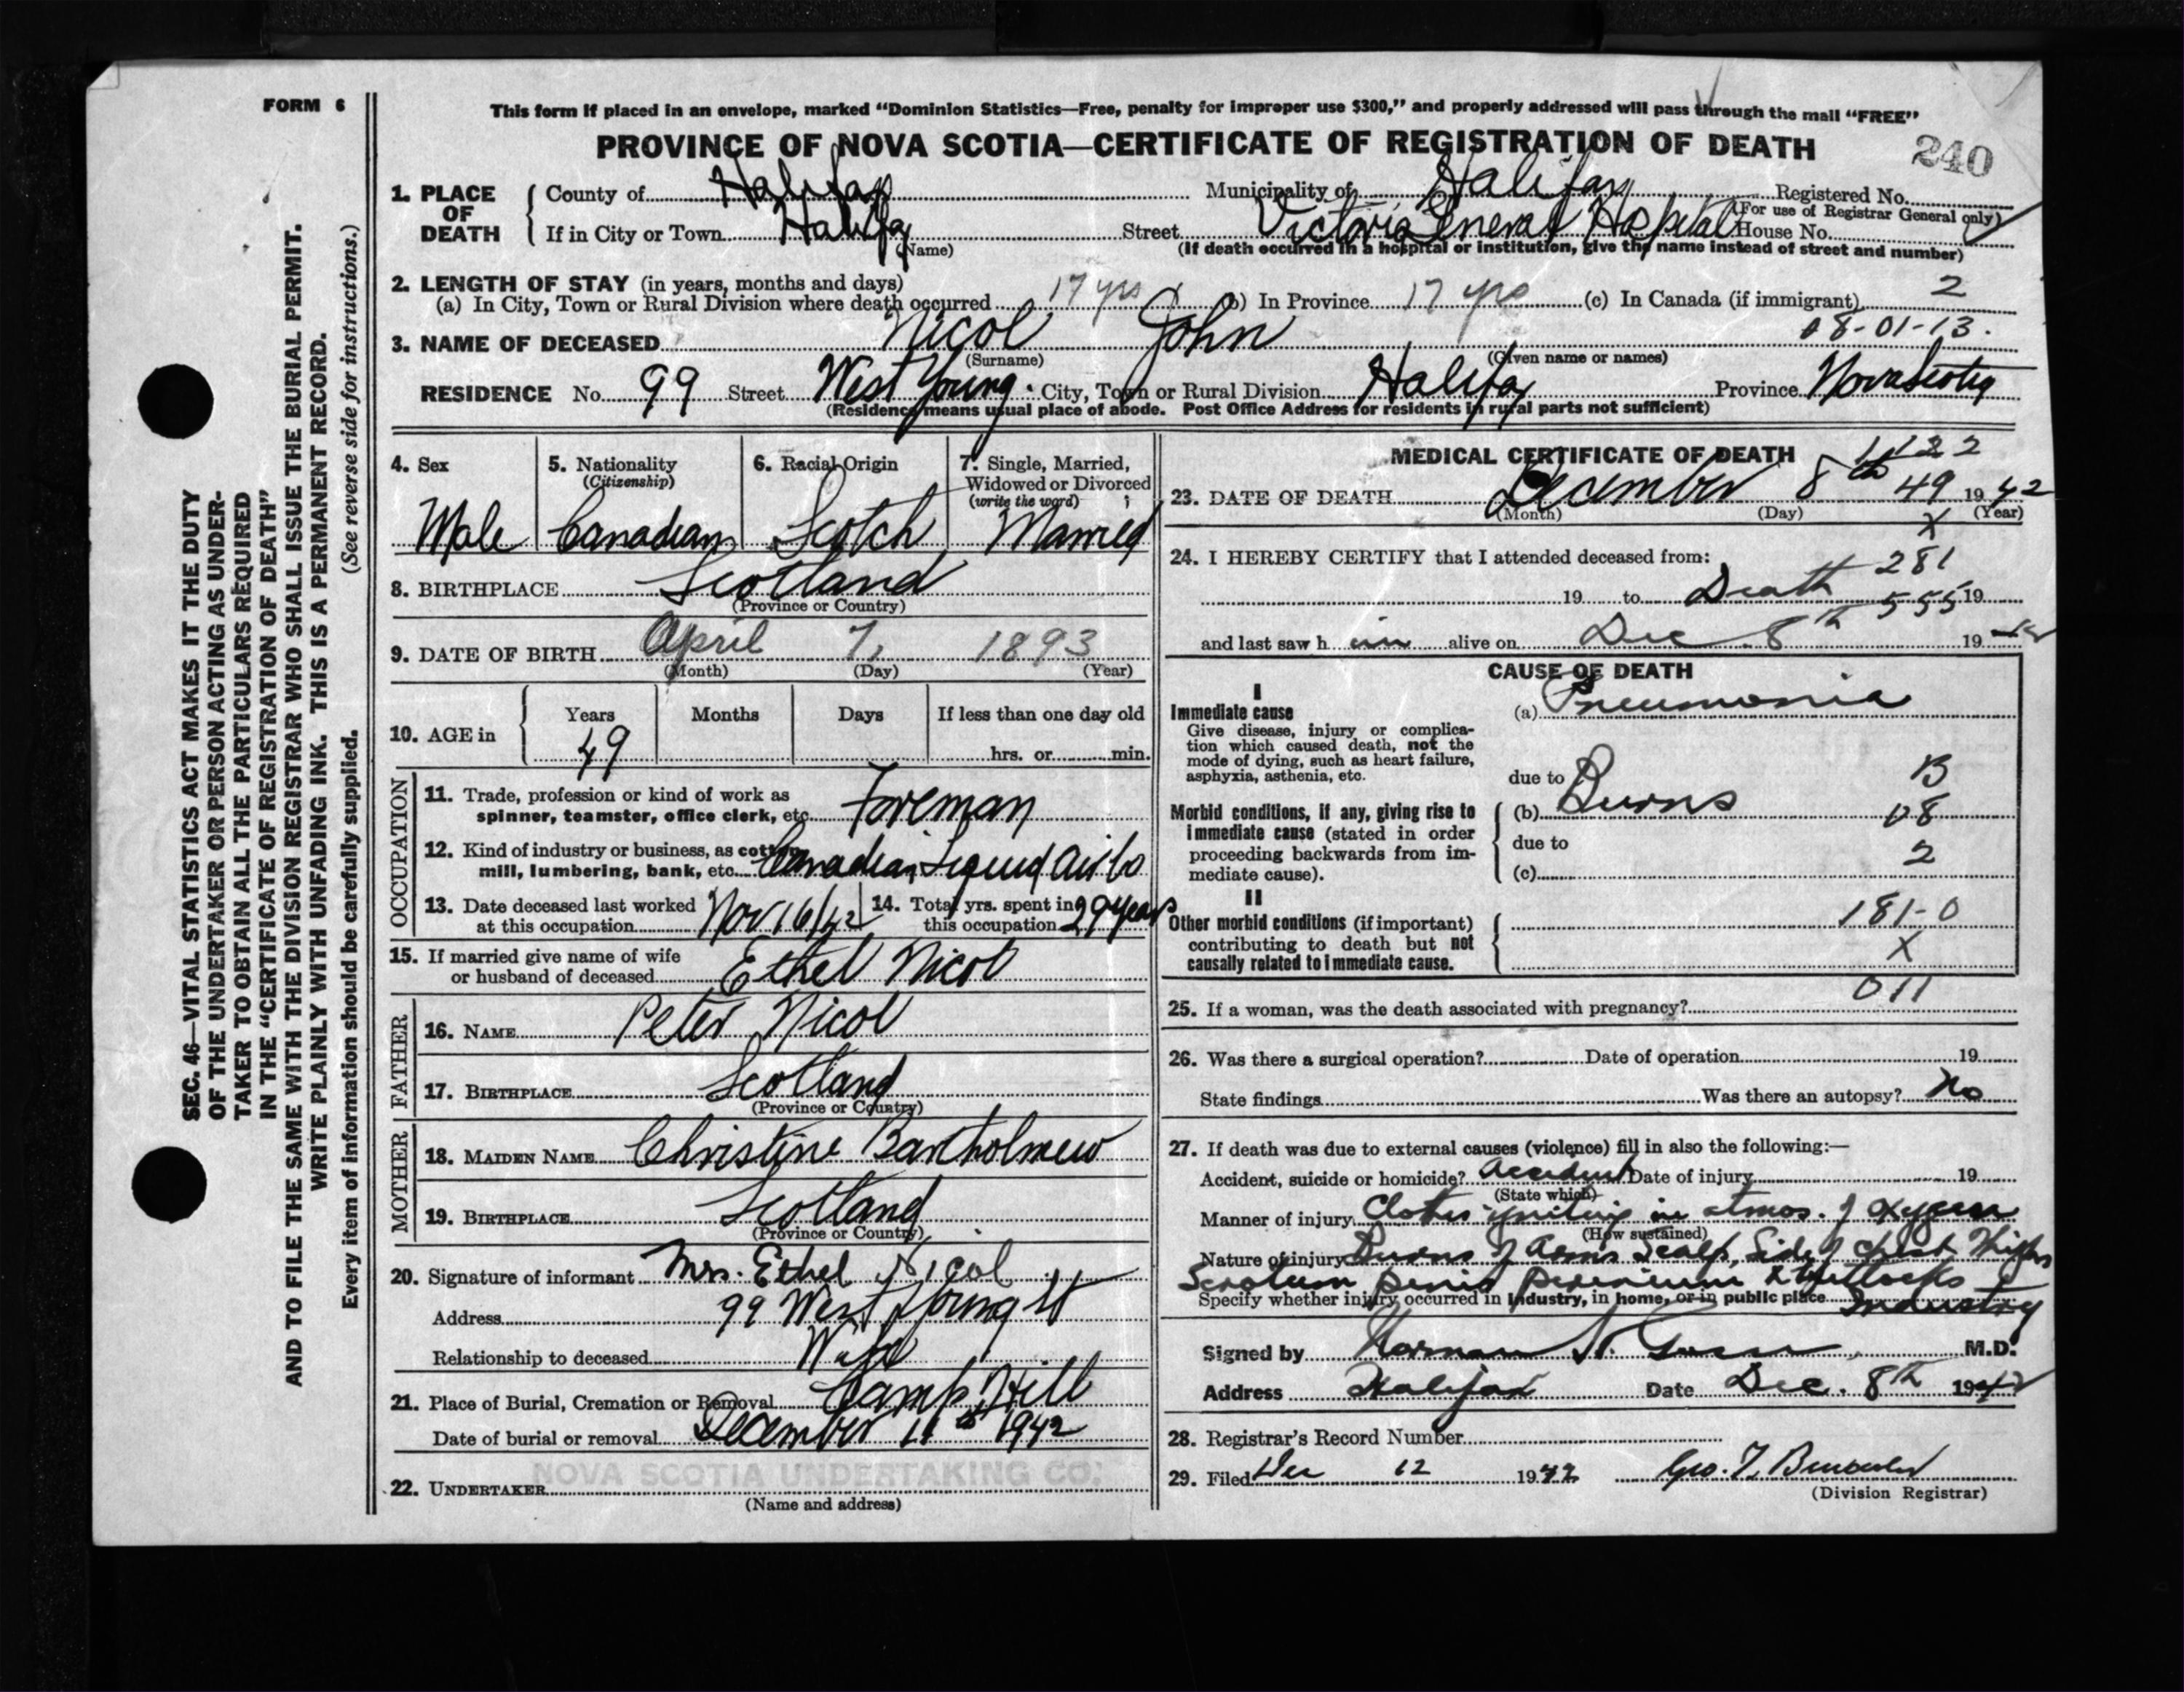 FORM 6
This form if placed in an envelope, marked “Dominion Statistics—Free, penalty for improper use $300,” and properly addressed will pass through the mail “FREE”
PROVINCE OF NOVA SCOTIA—CERTIFICATE OF REGISTRATION OF DEATH
240
1. PLACE OF DEATH
County of Halifax Municipality of Halifax Registered No.
(For use of Registrar General only)
If in City or Town Halifax Street Victoria General Hospital House No.
(Name) (If death occurred in a hospital or institution, give the name instead of street and number)
2. LENGTH OF STAY (in years, months and days)
(a) In City, Town or Rural Division where death occurred 17 yrs (b) In Province 17 yrs (c) In Canada (if immigrant) 2
08-01-13.
3. NAME OF DECEASED Nicol John
(Surname) (Given name or names)
RESIDENCE No. 99 Street West Young. City, Town or Rural Division Halifax Province Nova Scotia
(Residence means usual place of abode. Post Office Address for residents in rural parts not sufficient)
4. Sex
Male
5. Nationality
(Citizenship)
Canadian
6. Racial Origin
Scotch
7. Single, Married,
Widowed or Divorced
(write the word)
Married
8. BIRTHPLACE Scotland
(Province or Country)
9. DATE OF BIRTH April 7, 1893
(Month) (Day) (Year)
10. AGE in
Years Months Days If less than one day old
49 hrs. or min.
OCCUPATION
11. Trade, profession or kind of work as
spinner, teamster, office clerk, etc. Foreman
12. Kind of industry or business, as cotton
mill, lumbering, bank, etc. Canadian Liquid Air Co
13. Date deceased last worked
at this occupation Nov 16/42
14. Total yrs. spent in
this occupation 29 years
15. If married give name of wife
or husband of deceased Ethel Nicol
FATHER
16. NAME Peter Nicol
17. BIRTHPLACE Scotland
(Province or Country)
MOTHER
18. MAIDEN NAME Christine Bartholmew
19. BIRTHPLACE Scotland
(Province or Country)
20. Signature of informant Mrs. Ethel Nicol
Address 99 West Young St
Relationship to deceased Wife
21. Place of Burial, Cremation or Removal Camp Hill
Date of burial or removal December 11th 1942
NOVA SCOTIA UNDERTAKING CO.
22. UNDERTAKER
(Name and address)
MEDICAL CERTIFICATE OF DEATH
1122
23. DATE OF DEATH December 8th 49 1942
(Month) (Day) (Year)
X
24. I HEREBY CERTIFY that I attended deceased from:
281
19 to Death 555 19
and last saw h im alive on Dec 8th 19 42
CAUSE OF DEATH
I
Immediate cause
Give disease, injury or complica-
tion which caused death, not the
mode of dying, such as heart failure,
asphyxia, asthenia, etc.
(a) Pneumonia
due to B
Morbid conditions, if any, giving rise to
immediate cause (stated in order
proceeding backwards from im-
mediate cause).
(b) Burns 08
due to 2
(c)
II
Other morbid conditions (if important)
contributing to death but not
causally related to immediate cause.
181-0
X
011
25. If a woman, was the death associated with pregnancy?
26. Was there a surgical operation? Date of operation 19
State findings Was there an autopsy? No
27. If death was due to external causes (violence) fill in also the following:—
Accident, suicide or homicide? Accident Date of injury 19
(State which)
Manner of injury Clothes igniting in atmos. of oxygen
(How sustained)
Nature of injury Burns of Arms Scalp, Side of chest Thighs
Scrotum penis perenium & buttocks
Specify whether injury occurred in industry, in home, or in public place Industry
Signed by Norman H. M.D.
Address Halifax Date Dec. 8th 1942
28. Registrar's Record Number
29. Filed Dec 12 1942 Geo. T.
(Division Registrar)
SEC. 46—VITAL STATISTICS ACT MAKES IT THE DUTY
OF THE UNDERTAKER OR PERSON ACTING AS UNDER-
TAKER TO OBTAIN ALL THE PARTICULARS REQUIRED
IN THE “CERTIFICATE OF REGISTRATION OF DEATH”
AND TO FILE THE SAME WITH THE DIVISION REGISTRAR WHO SHALL ISSUE THE BURIAL PERMIT.
WRITE PLAINLY WITH UNFADING INK. THIS IS A PERMANENT RECORD.
Every item of information should be carefully supplied. (See reverse side for instructions.)